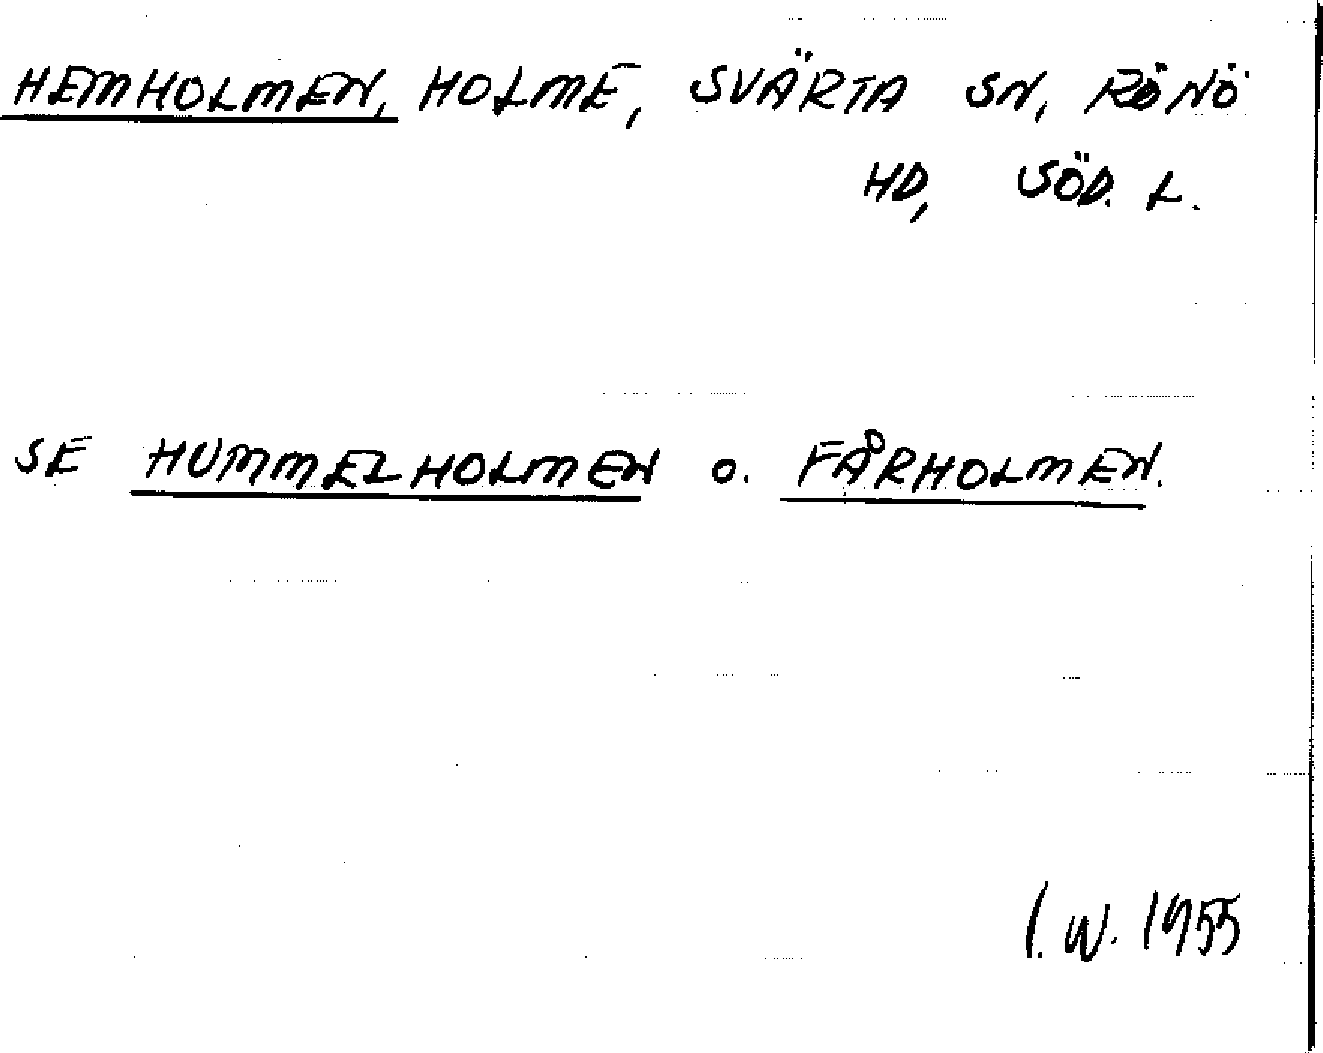 HEMHOLMEN, HOLME, SVÄRTA SN, RÖNÖ
HD, SÖD. L.
SE HUMMELHOLMEN o. FÅRHOLMEN.
I. W. 1955